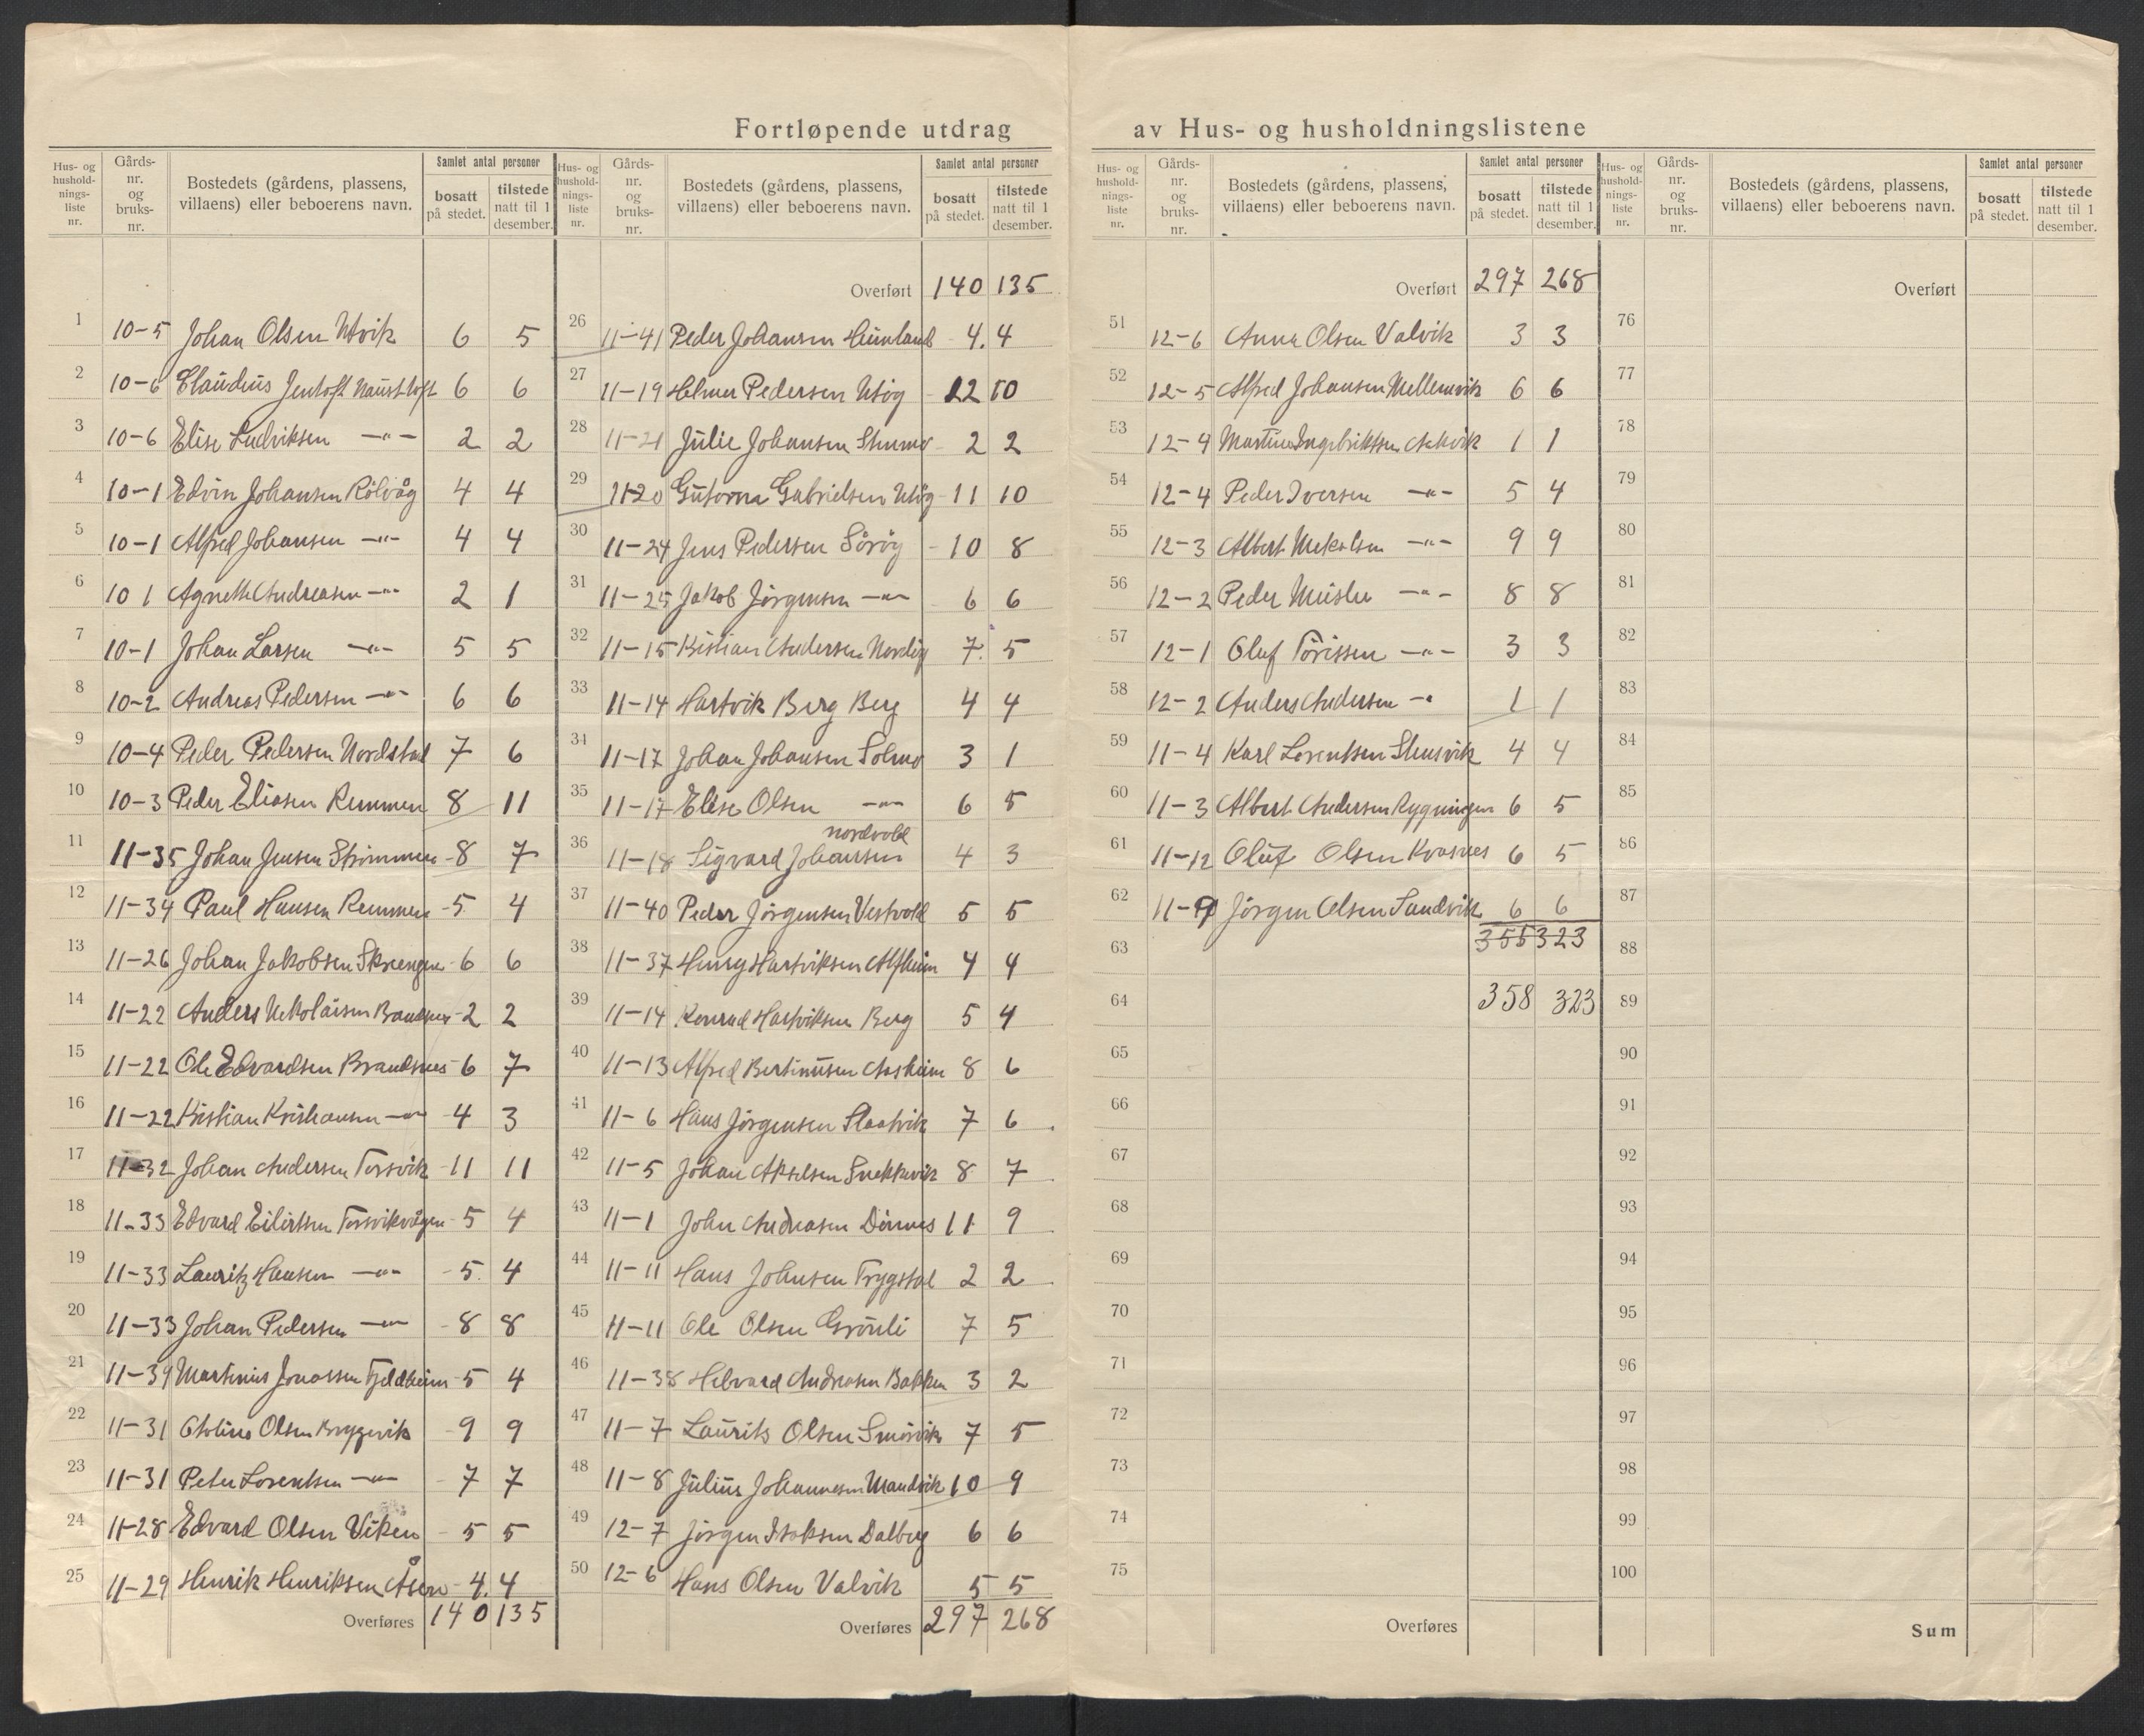 Fortløpende utdrag av Hus- og husholdningslistene
Hus- og hushold-nings-liste nr. | Gårds-nr. og bruks-nr. | Bostedets (gårdens, plassens, villaens) eller beboerens navn. | Samlet antal personer bosatt på stedet. | tilstede natt til 1 desember.
1 10-5 Johan Olsen Utvik 6 5
2 10-6 Claudius Jentoft Nausttoft 6 6
3 10-6 Elise Ludviksen —"— 2 2
4 10-1 Edvin Johansen Rölvåg 4 4
5 10-1 Alfred Johansen —"— 4 4
6 10 1 Agnethe Andreasen —"— 2 1
7 10-1 Johan Larsen —"— 5 5
8 10-2 Andreas Pedersen —"— 6 6
9 10-4 Peder Pedersen Nordstad 7 6
10 10-3 Peder Eliasen Remmen 8 11
11 11-35 Johan Jensen Strömmen 8 7
12 11-34 Paul Hansen Remmen 5 4
13 11-26 Johan Jakobsen 6 6
14 11-22 Anders Nikolaisen 2 2
15 11-22 Ole Edvardsen Brandsnes 6 7
16 11-22 Kristian Kristiansen —"— 4 3
17 11-32 Johan Andersen Torsvik 11 11
18 11-33 Edvard Eilertsen Torsvikvågen 5 4
19 11-33 Lauritz Hansen —"— 5 4
20 11-33 Johan Pedersen —"— 8 8
21 11-39 Martinus Jonassen Fjeldheim 5 4
22 11-31 Olsen Bryggvik 9 9
23 11-31 Peter Lorentsen —"— 7 7
24 11-28 Edvard Olsen Viken 5 5
25 11-29 Henrik Henriksen Åsen 4 4
Overføres 140 135
Hus- og hushold-nings-liste nr. | Gårds-nr. og bruks-nr. | Bostedets (gårdens, plassens, villaens) eller beboerens navn. | Samlet antal personer bosatt på stedet. | tilstede natt til 1 desember.
Overført 140 135
26 11-41 Peder Johansen Heimland 4. 4
27 11-19 Helmer Pedersen Utög 12 10
28 11-21 Julie Johansen Stenmo 2 2
29 11-20 Guttorm Gabrielsen Utög 11 10
30 11-24 Jens Pedersen Sörög 10 8
31 11-25 Jakob Jörgensen —"— 6 6
32 11-15 Kristian Andersen Nordög 7. 5
33 11-14 Hartvik Berg Berg 4 4
34 11-17 Johan Johansen Solmo 3 1
35 11-17 Elise Olsen —"— 6 5
36 11-18 Sigvard Johansen nordvold 4 3
37 11-40 Peder Jörgensen Vestvold 5 5
38 11-37 Henry Hartviksen Alfheim 4 4
39 11-14 Konrad Hartviksen Berg 5 4
40 11-13 Alfred Bertinusen Aasheim 8 6
41 11-6 Hans Jörgensen Slaatvik 7 6
42 11-5 Johan Akselsen Snekkevik 8 7
43 11-1 John Andreasen Dönnes 11 9
44 11-11 Hans Johnsen Trygstad 2 2
45 11-11 Ole Olsen Grönli 7 5
46 11-38 Helvard Andreasen Bakken 3 2
47 11-7 Laurits Olsen Smörvik 7 5
48 11-8 Julius Johannesen Maudvik 10 9
49 12-7 Jörgen Isaksen Dalberg 6 6
50 12-6 Hans Olsen Valvik 5 5
Overføres 297 268
Hus- og hushold-nings-liste nr. | Gårds-nr. og bruks-nr. | Bostedets (gårdens, plassens, villaens) eller beboerens navn. | Samlet antal personer bosatt på stedet. | tilstede natt til 1 desember.
Overført 297 268
51 12-6 Anna Olsen Valvik 3 3
52 12-5 Alfred Johansen Mellemvik 6 6
53 12-4 Martin Ingebriktsen Askvik 1 1
54 12-4 Peder Iversen —"— 5 4
55 12-3 Albert —"— 9 9
56 12-2 Peder —"— 8 8
57 12-1 Oluf Törissen —"— 3 3
58 12-2 Anders Andersen —" 1 1
59 11-4 Karl Lorentsen Stensvik 4 4
60 11-3 Albert Andersen Rygningen 6 5
61 11-12 Oluf Olsen Kvasnes 6 5
62 11-9 Jörgen Olsen Sandvik 6 6
63 355 323
64 358 323
65
66
67
68
69
70
71
72
73
74
75
Overføres
Hus- og hushold-nings-liste nr. | Gårds-nr. og bruks-nr. | Bostedets (gårdens, plassens, villaens) eller beboerens navn. | Samlet antal personer bosatt på stedet. | tilstede natt til 1 desember.
Overført
76
77
78
79
80
81
82
83
84
85
86
87
88
89
90
91
92
93
94
95
96
97
98
99
100
Sum